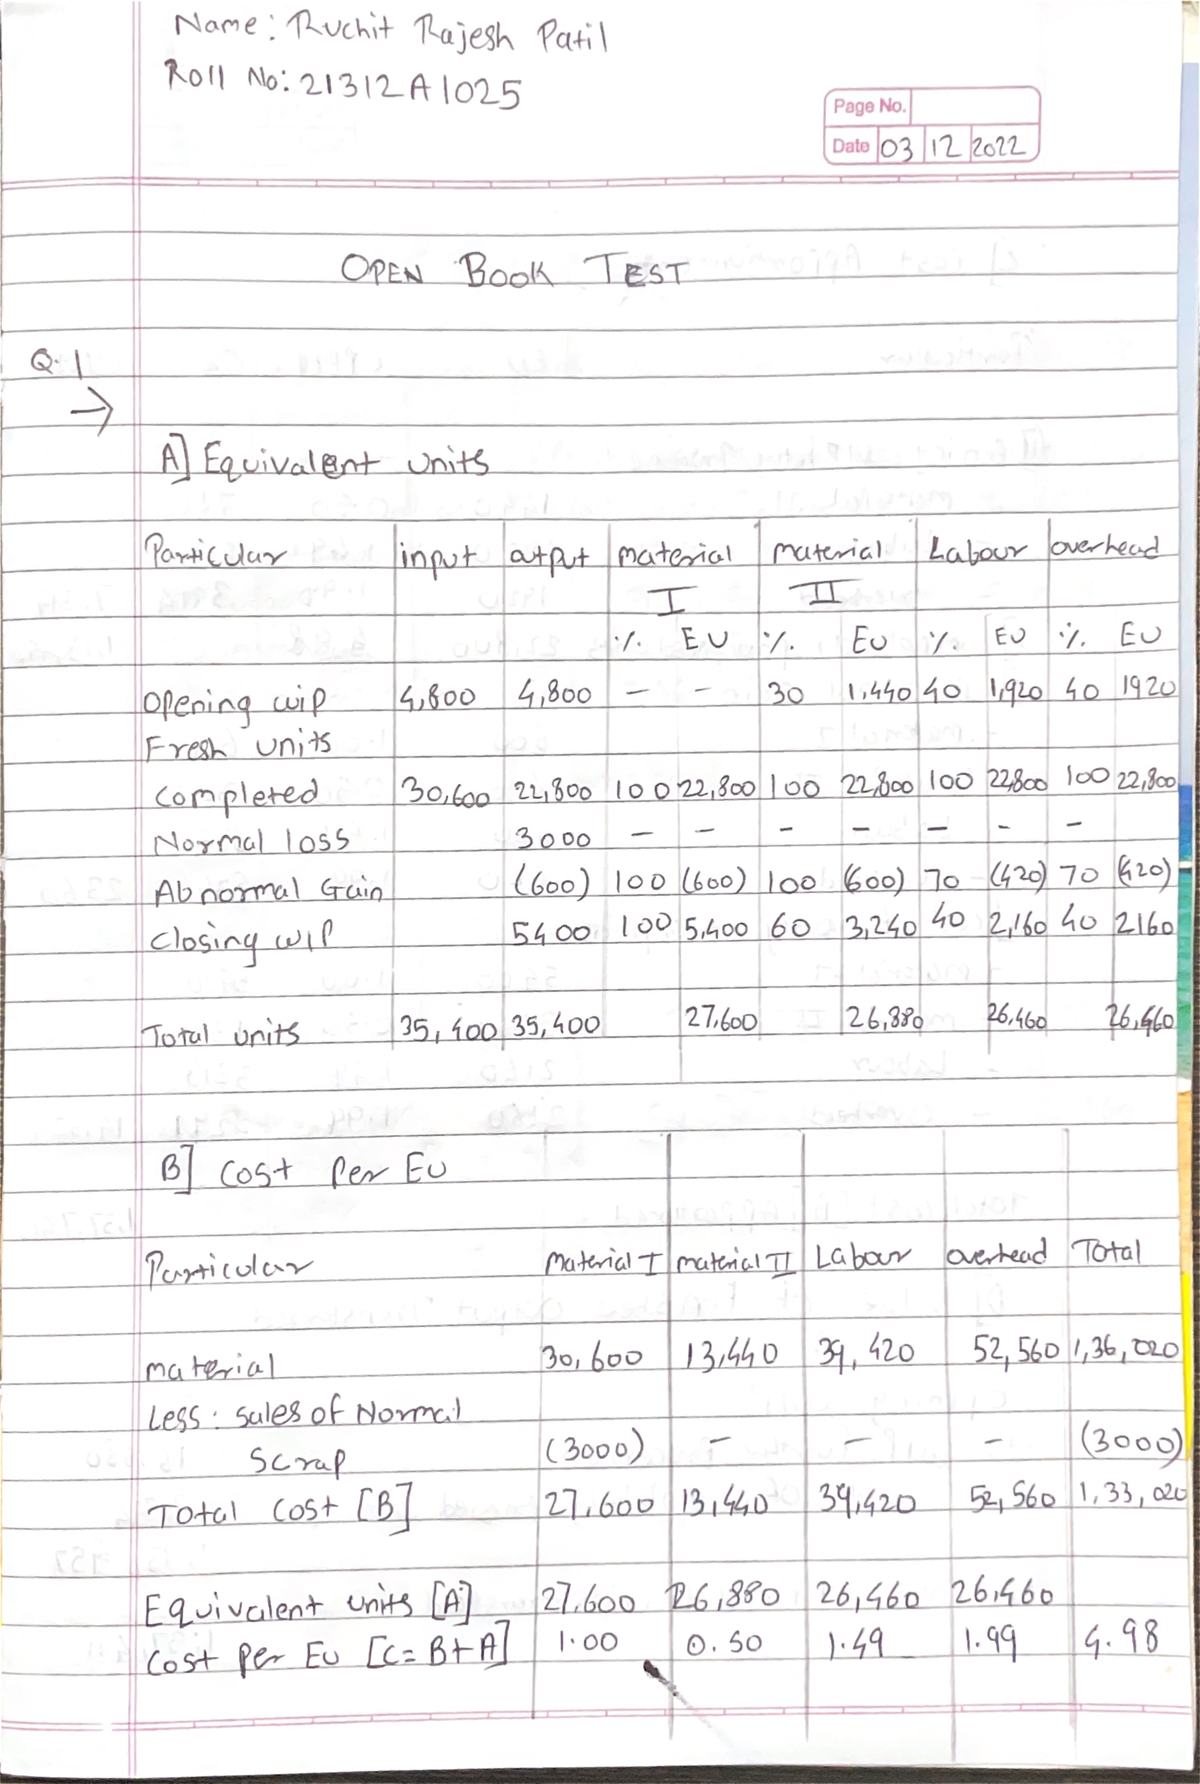 Name: Ruchit Rajesh Patil
Roll No: 21312A1025
Page No.
Date 03 12 2022
OPEN BOOK TEST
Q.1
→
A] Equivalent units
Particular input output material I material II Labour overhead
% EU % EU % EU % EU
Opening wip 4,800 4,800 – – 30 1,440 40 1,920 40 1920
Fresh units
completed 30,600 22,800 100 22,800 100 22,800 100 22,800 100 22,800
Normal loss 3000 – – – – – – –
Abnormal Gain (600) 100 (600) 100 (600) 70 (420) 70 (420)
closing wip 5400 100 5,400 60 3,240 40 2,160 40 2160
Total units 35,400 35,400 27,600 26,880 26,460 26,460
B] Cost per EU
Particular Material I material II Labour overhead Total
material 30,600 13,440 39,420 52,560 1,36,020
Less: sales of Normal
Scrap (3000) – – – (3000)
Total cost [B] 27,600 13,440 39,420 52,560 1,33,020
Equivalent units [A] 27,600 26,880 26,460 26,460
Cost per EU [C=B+A] 1.00 0.50 1.49 1.99 4.98